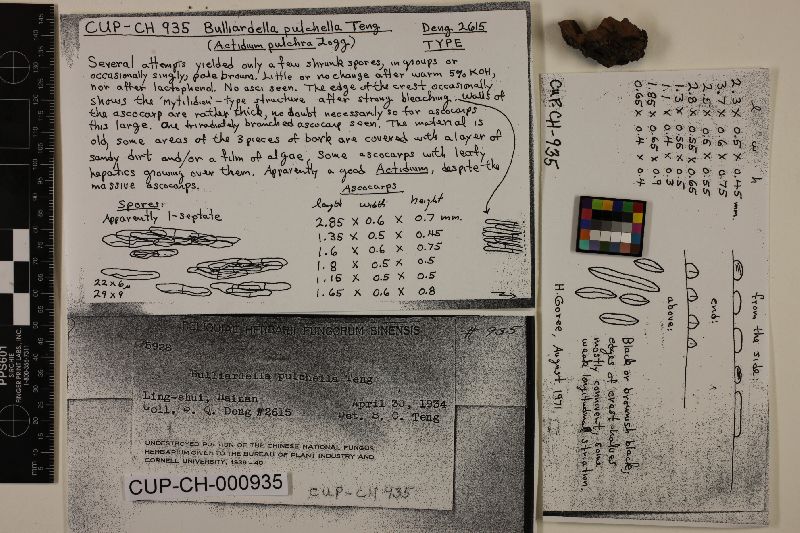 CUP-CH 935 Bulliardella pulchella Teng Deng 2615
(Actidium pulchra Zogg) TYPE
Several attempts yielded only a few shrunk spores, in groups or
occasionally singly, pale brown. Little or no change after warm 5% KOH,
nor after lactophenol. No asci seen. The edge of the crest occasionally
shows the "mytilidion"-type structure after strong bleaching. Walls of
the ascocarp are rather thick, no doubt necessarily so for ascocarps
this large. One triradiately branched ascocarp seen. The material is
old, some areas of the 3 pieces of bark are covered with a layer of
sandy dirt and/or a film of algae. Some ascocarps with leafy
hepatics growing over them. Apparently a good Actidium, despite the
massive ascocarps.
Spores:
Apparently 1-septate
22 x 6μ
29 x 9
Ascocarps
length width height
2.85 X 0.6 X 0.7 mm.
1.35 X 0.5 X 0.45
1.6 X 0.6 X 0.75
1.8 X 0.5 X 0.5
1.15 X 0.5 X 0.5
1.65 X 0.6 X 0.8
RELIQUIAE HERBARII FUNGORUM SINENSIS # 935
Bulliardella pulchella Teng
Ling-shui, Hainan April 30, 1934
Coll. S. Q. Deng #2615 Det. S. C. Teng
UNDESTROYED PORTION OF THE CHINESE NATIONAL FUNGUS
HERBARIUM GIVEN TO THE BUREAU OF PLANT INDUSTRY AND
CORNELL UNIVERSITY, 1939-40
CUP-CH-000935
CUP-CH 935
CUP CH-935
l w h
2.3 X 0.5 X 0.45 mm
3.7 X 0.6 X 0.75
2.5 X 0.6 X 0.55
2.8 X 0.55 X 0.65
1.3 X 0.55 X 0.5
1.1 X 0.4 X 0.3
1.85 X 0.65 X 0.9
0.65 X 0.4 X 0.4
from the side:
end:
above:
Black or brownish black,
edges of crest valves
mostly connivent, some
weak longitudinal striation.
H. Goree, August 1971
PPS601
SIRCHIE
FINGER PRINT LABS, INC.
mm